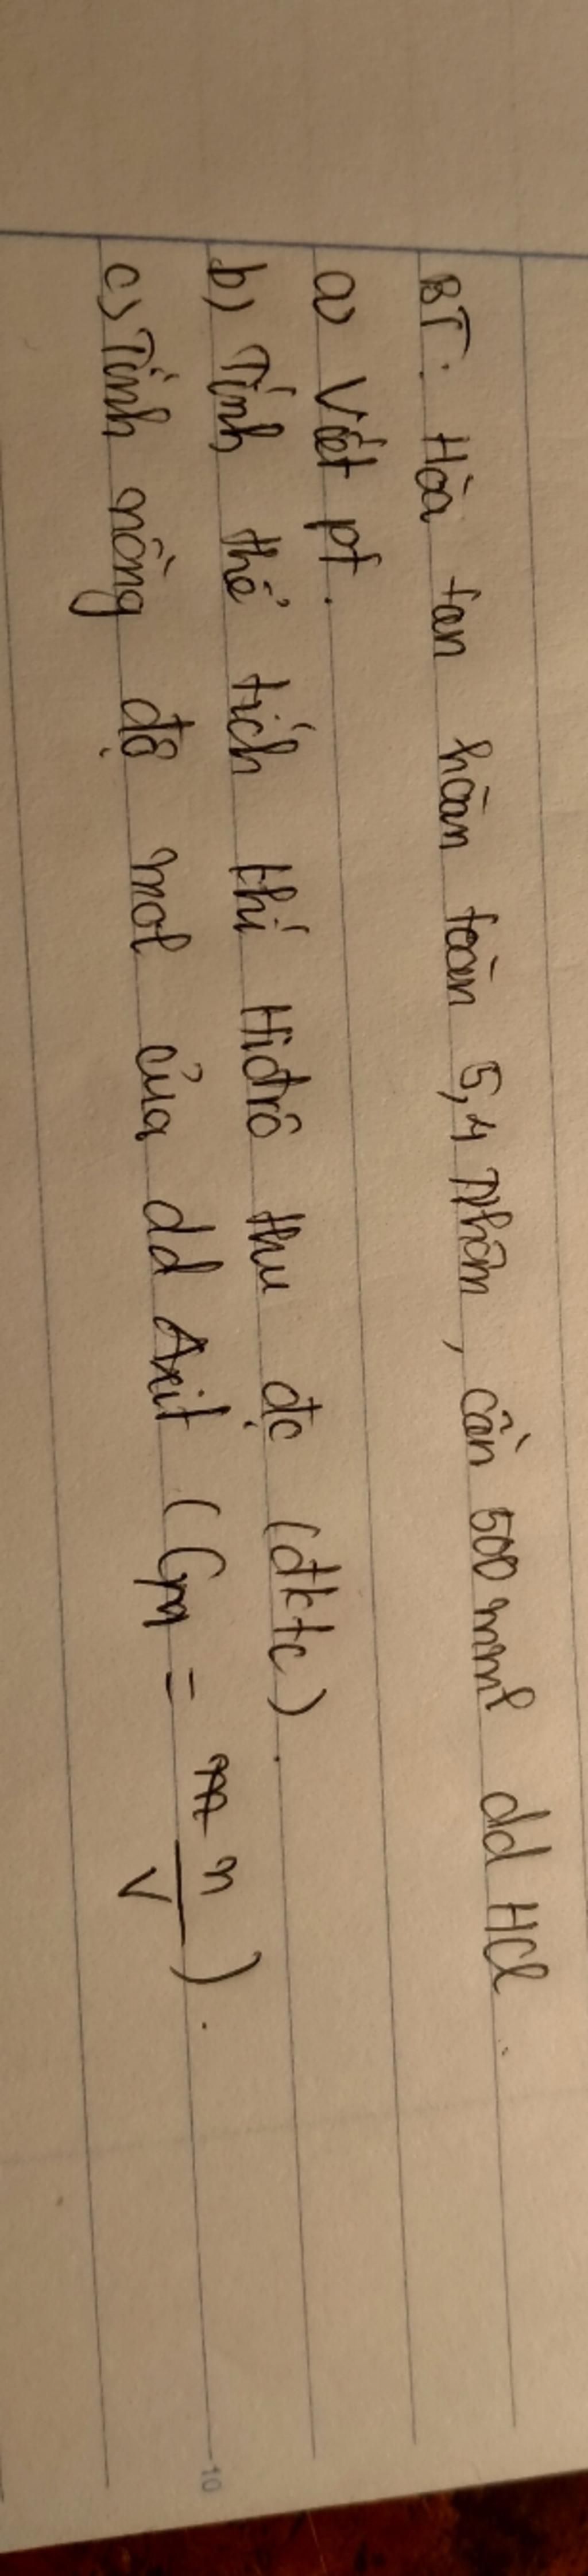 BT: Hòa tan hoàn toàn 5,4 Nhôm, cần 500 mml dd HCl.
a) Viết pt.
b) Tính thể tích khí Hiđrô thu đc (đktc).
c) Tính nồng độ mol của dd Axit (CM = n/V).
10